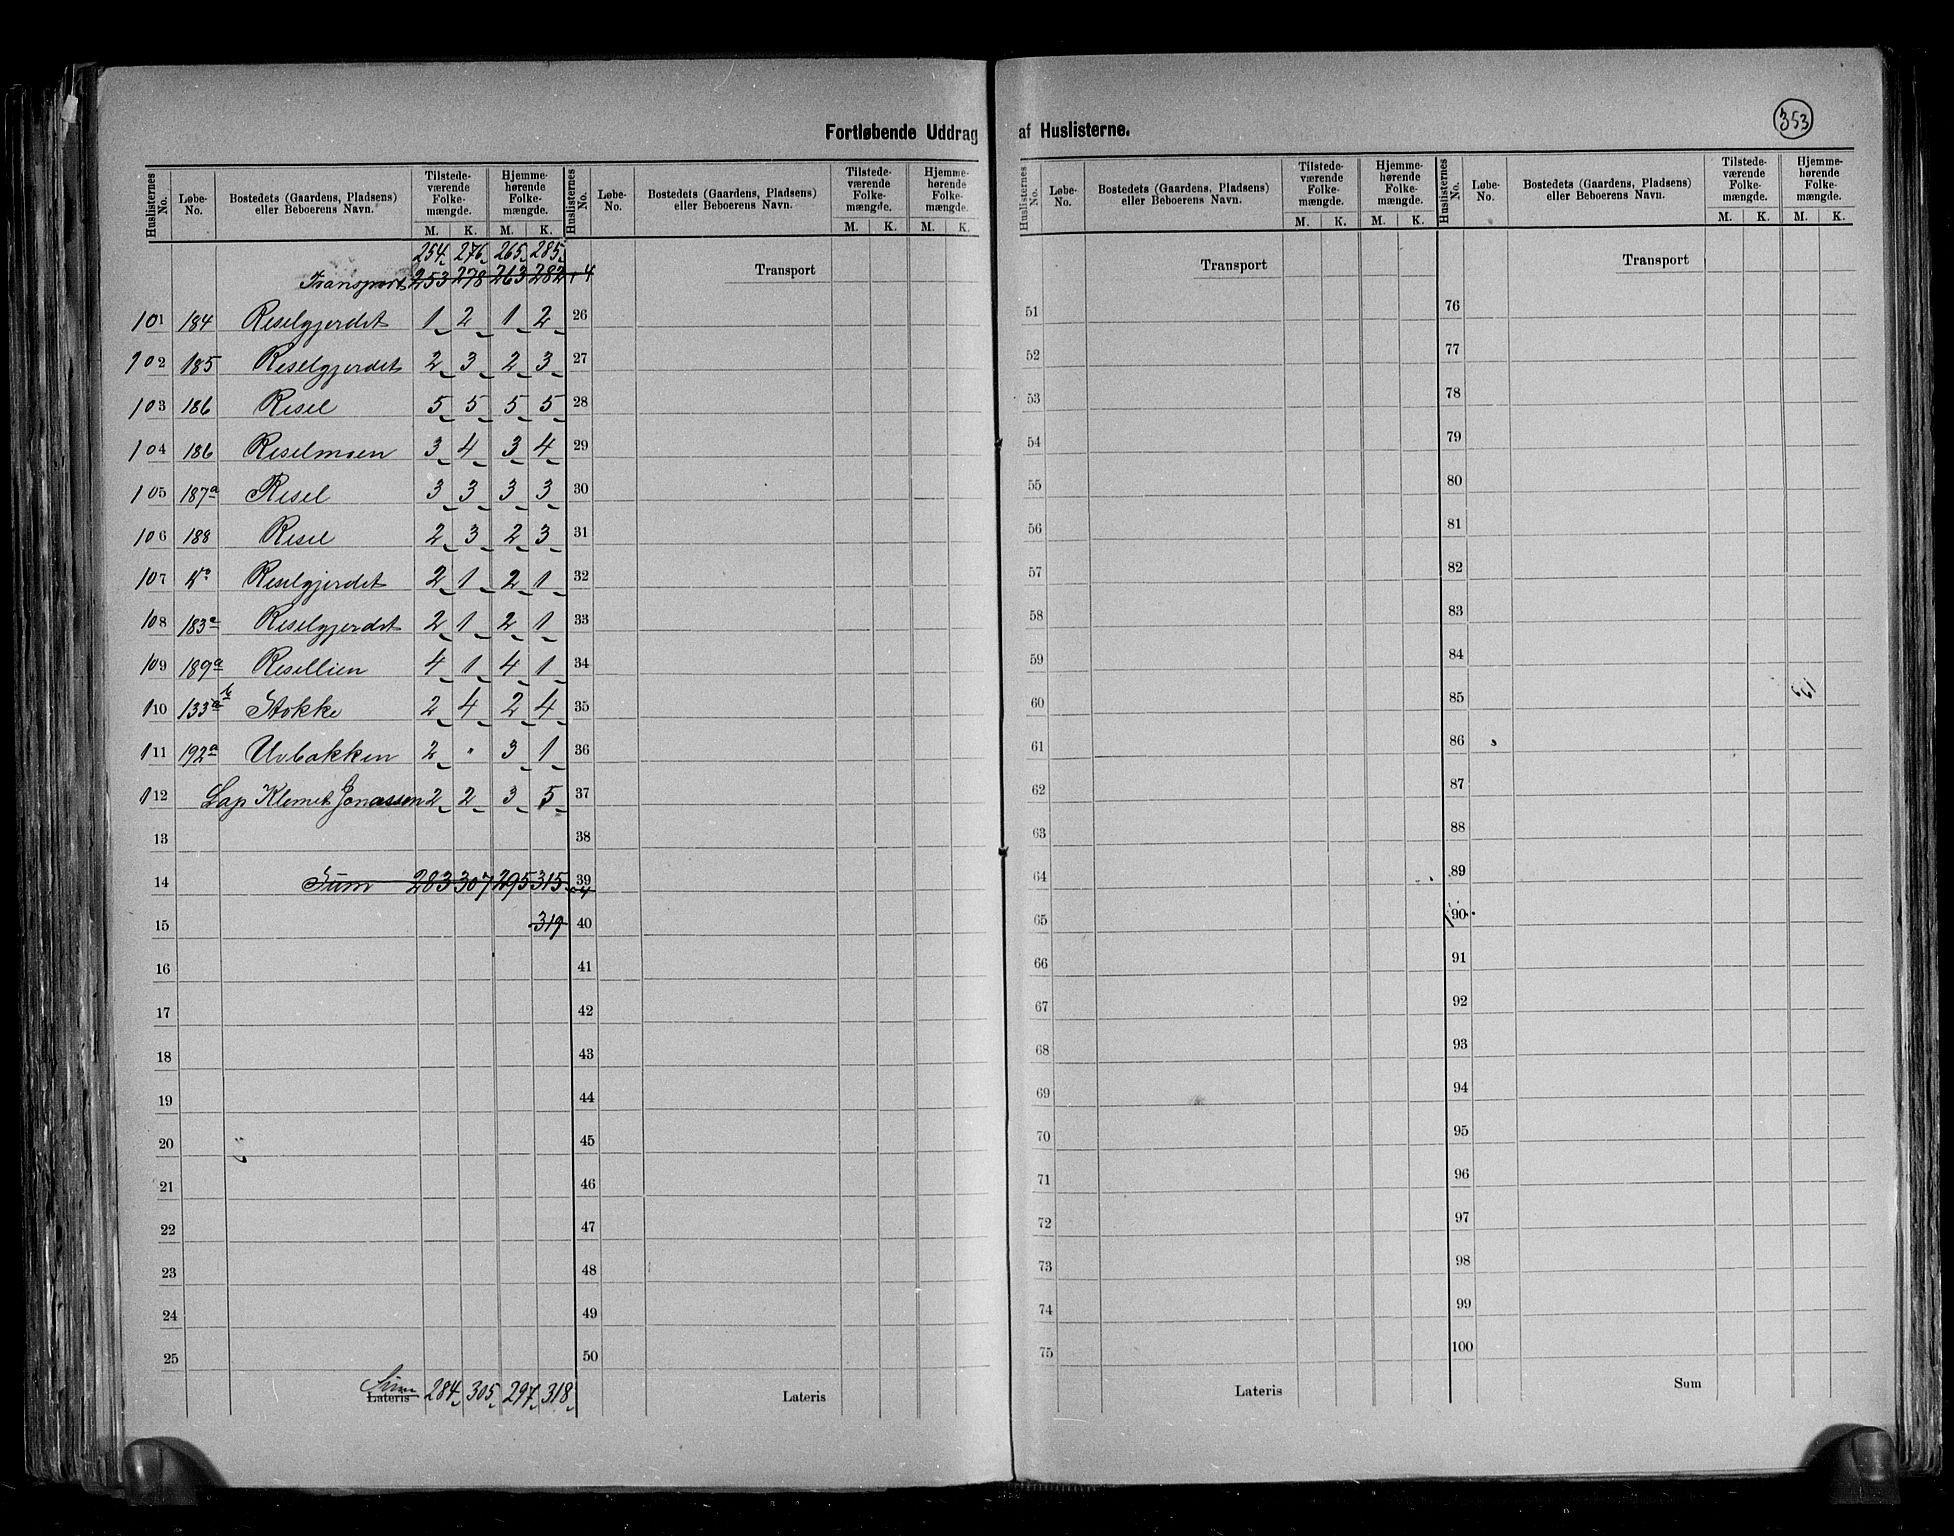 Fortløbende Uddrag af Huslisterne.
353
Huslisternes No. | Løbe-No. | Bostedets (Gaardens, Pladsens) eller Beboerens Navn. | Tilstedeværende Folkemængde. M. K. | Hjemmehørende Folkemængde. M. K.
Huslisternes No. | Løbe-No. | Bostedets (Gaardens, Pladsens) eller Beboerens Navn. | Tilstedeværende Folkemængde. M. K. | Hjemmehørende Folkemængde. M. K.
Huslisternes No. | Løbe-No. | Bostedets (Gaardens, Pladsens) eller Beboerens Navn. | Tilstedeværende Folkemængde. M. K. | Hjemmehørende Folkemængde. M. K.
Huslisternes No. | Løbe-No. | Bostedets (Gaardens, Pladsens) eller Beboerens Navn. | Tilstedeværende Folkemængde. M. K. | Hjemmehørende Folkemængde. M. K.
254 276 265 285
Transport 253 278 263 282 + 4
101 184 Reselgjerdet 1 2 1 2
102 185 Reselgjerdet 2 3 2 3
103 186 Resel 5 5 5 5
104 186 Reselmoen 3 4 3 4
105 187a Resel 3 3 3 3
106 188 Resel 2 3 2 3
107 do Reselgjerdet 2 1 2 1
108 183a Reselgjerdet 2 1 2 1
109 189a Resellien 4 1 4 1
110 133a b Stokke 2 4 2 4
111 192a Uvbakken 2 " 3 1
112 Lap Klemet Jonassen 2 2 3 5
13
14 Sum 283 307 295 315 + 4
15 319
16
17
18
19
20
21
22
23
24
25
Sum
Lateris 284 305 297 318
Transport
26
27
28
29
30
31
32
33
34
35
36
37
38
39
40
41
42
43
44
45
46
47
48
49
50
Lateris
Transport
51
52
53
54
55
56
57
58
59
60
61
62
63
64
65
66
67
68
69
70
71
72
73
74
75
Lateris
Transport
76
77
78
79
80
81
82
83
84
85
86
87
88
89
90
91
92
93
94
95
96
97
98
99
100
Sum